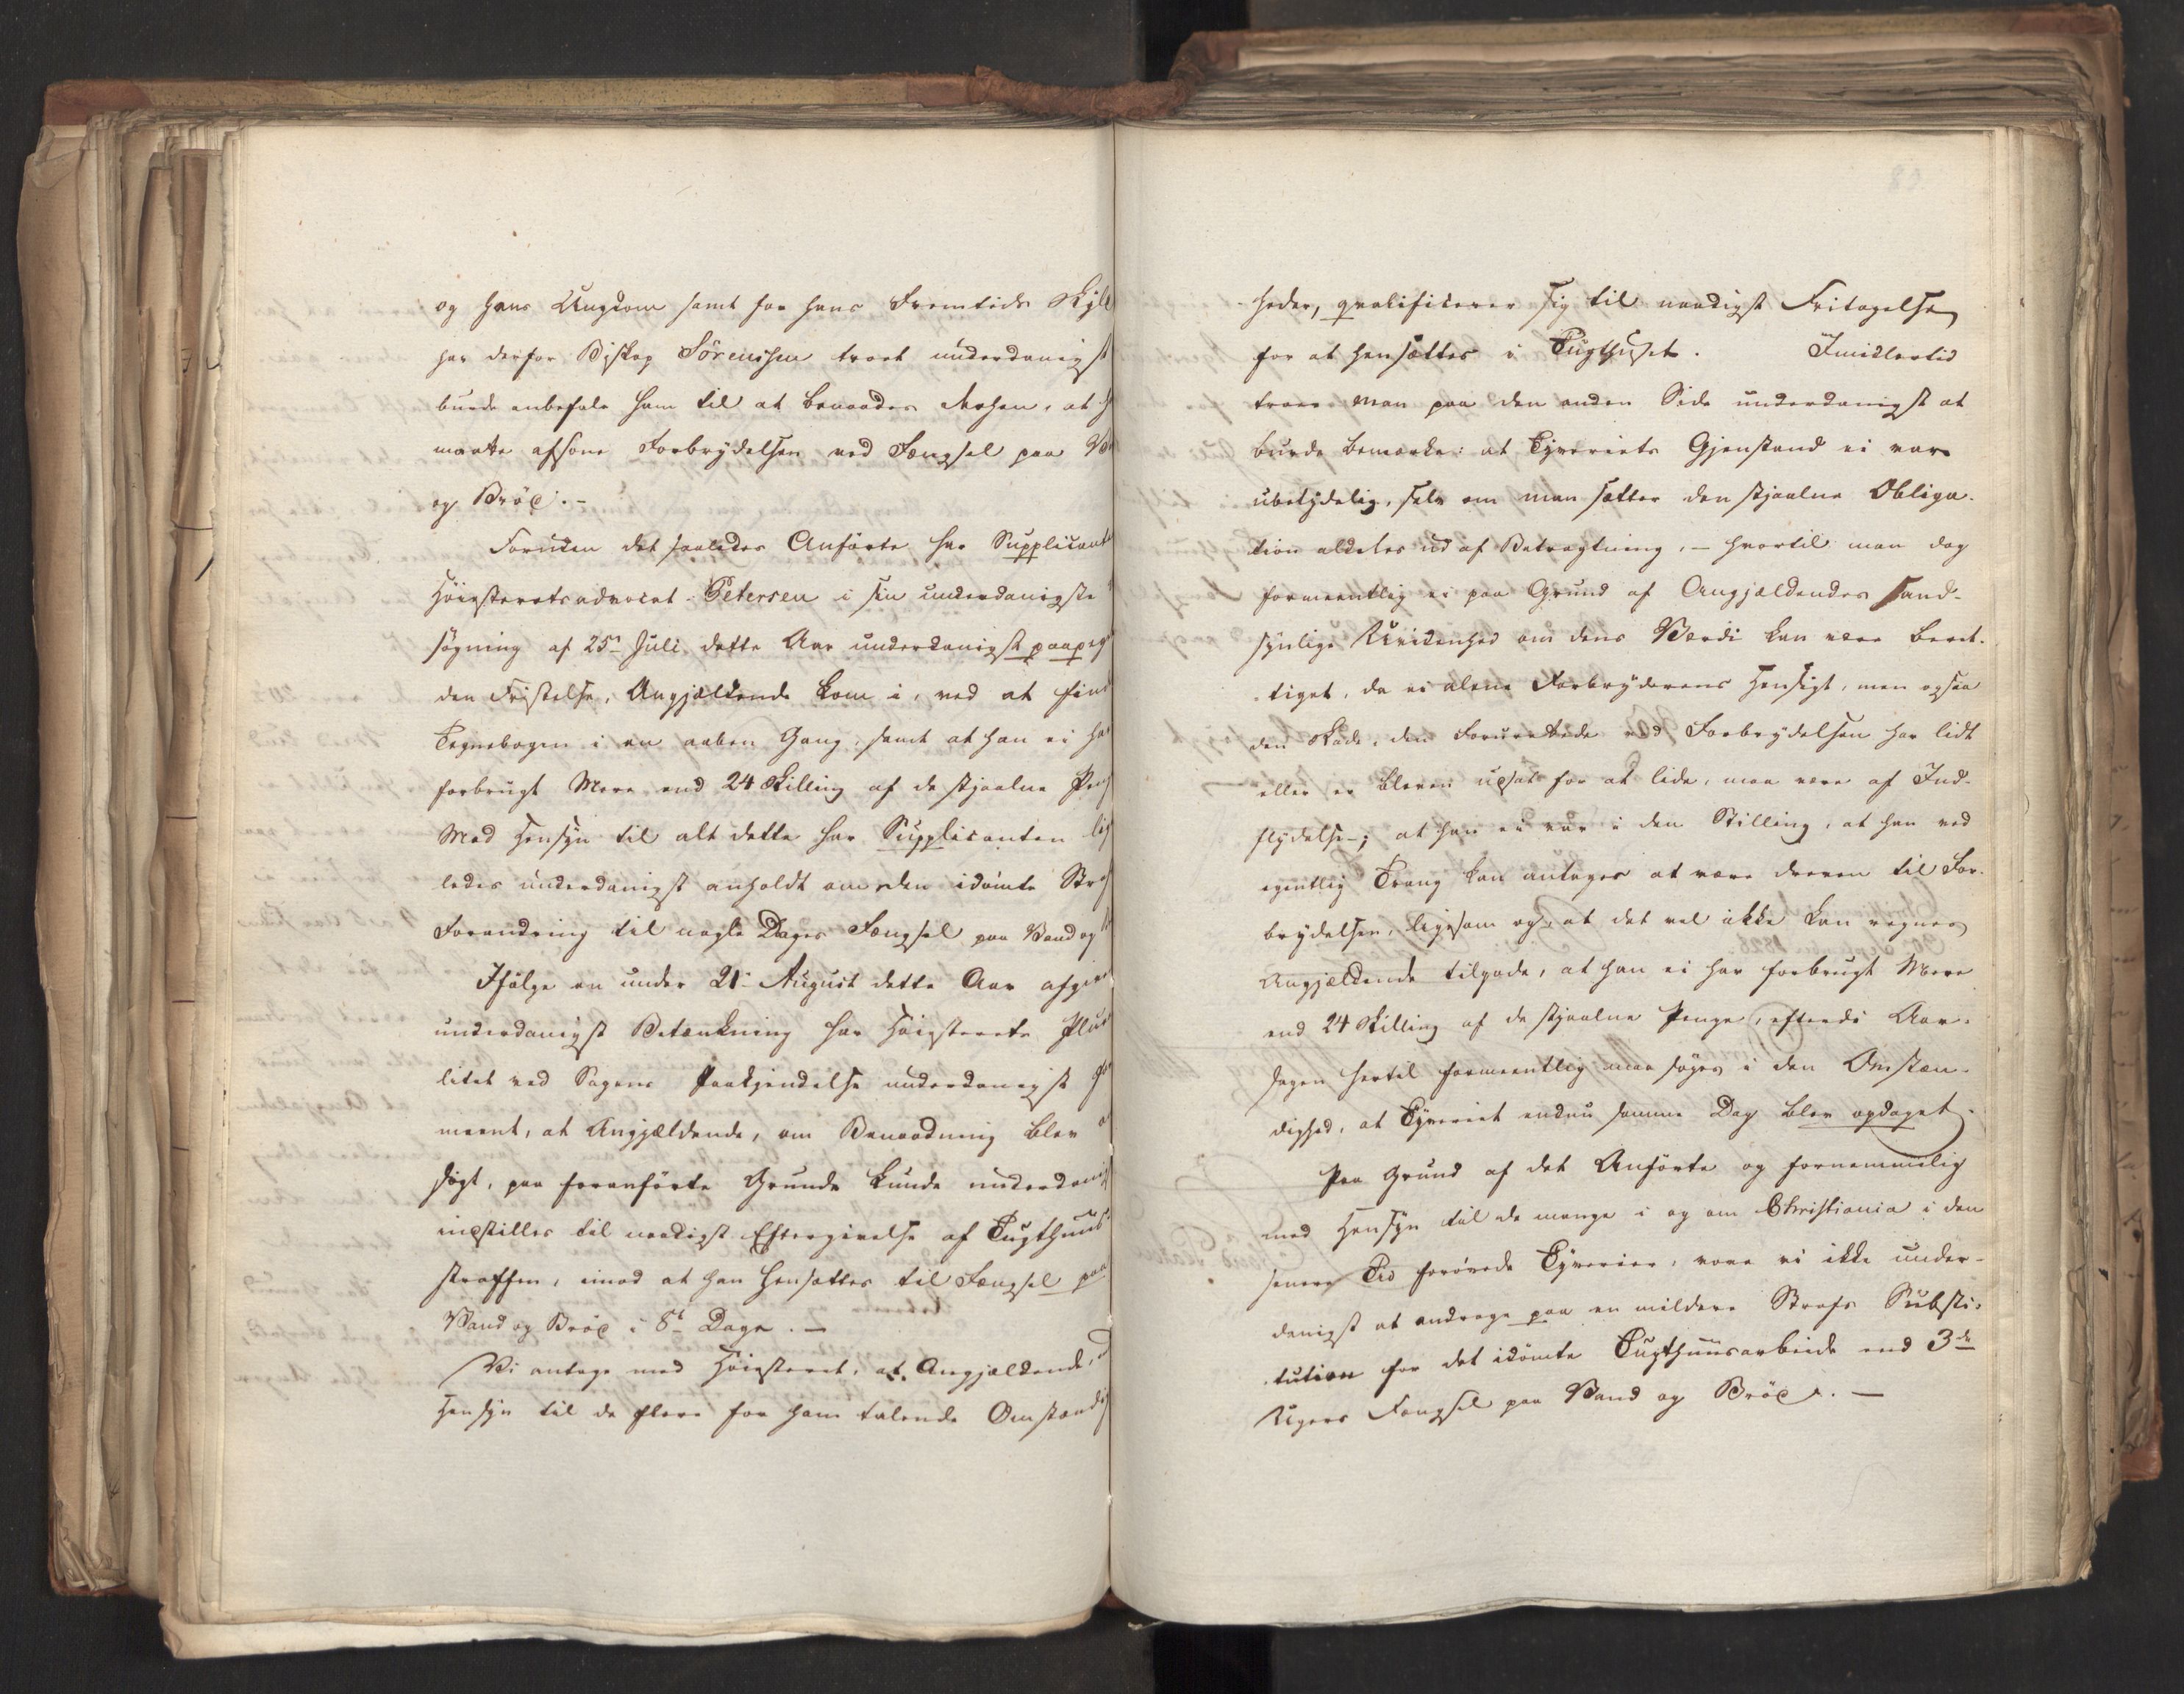 og hans Ungdom samt for hans Fremtids Skyld
har derfor Biskop Sörenssen troet underdanigst
burde anbefale ham til at benaades derhen, at h
maatte afsone Forbrydelsen ved Fængsel paa Va
og Bröd. -
Foruden det saaledes Anförte har Supplicant
Höiesteretsadvocat Petersen i sin underdanigste
søgning af 25n Juli dette Aar underdanigst paapeget
den Fristelse, Angjældende kom i, ved at finde
Tegnebogen i en aaben Gang, samt at han ei har
forbrugt Mere end 24 Skilling af de stjaalne Peng
Med Hensyn til alt dette har Supplicanten lige
ledes underdanigst anholdt om den idömte Strafs
Forandring til nogle Dages Fængsel paa Vand og
Ifölge en under 21 August dette Aar afgiven
underdanigst Betænkning har Höiesterets Plura
litet ved Sagens Paakjendelse underdanigst for
meent, at Angjældende, om Benaadning blev an
søgt, paa foranförte Grunde kunde underdanigst
indstilles til naadigst Eftergivelse af Tugthuus
straffen, imod at han hensættes til Fængsel paa
Vand og Bröd i 8t Dage. —
Vi antage med Höiesteret, at Angjældende, m
Hensyn til de flere for ham talende Omstændig
83
heder, qvalificerer sig til naadigst Fritagelse
for at hensættes i Tugthuset. Imidlertid
troer man paa den anden Side underdanigst at
burde bemærke: at Tyveriets Gjenstand ei var
ubetydelig, selv om man sætter den stjaalne Obliga-
tion aldeles ud af Betragtning, — hvortil man dog
formeentlig ei paa Grund af Angjældendes sand-
synlige Uvidenhed om dens Værdi kan være beret-
tiget, da ei alene Forbryderens Hensigt, men ogsaa
den Skade, den Forurettede ved Forbrydelsen har lidt
eller er bleven udsat for at lide, maa være af Ind-
flydelse -; at han ei var i den Stilling, at han ved
egentlig Trang kan antages at være dreven til For-
brydelsen, ligesom og, at det vel ikke kan regnes
Angjældende tilgode, at han ei har forbrugt Mere
end 24 Skilling af de stjaalne Penge, efterdi Aar-
sagen hertil formeentlig maa søges i den Omstæn-
dighed, at Tyveriet endnu samme Dag blev opdaget.
Paa Grund af det Anförte og fornemmelig
med Hensyn til de mange i og om Christiania i den
senere Tid forövede Tyverier, vove vi ikke under-
danigst at andrage paa en mildere Strafs Substi-
tution for det idömte Tugthuusarbeide end 3de
Ugers Fængsel paa Vand og Bröd. —